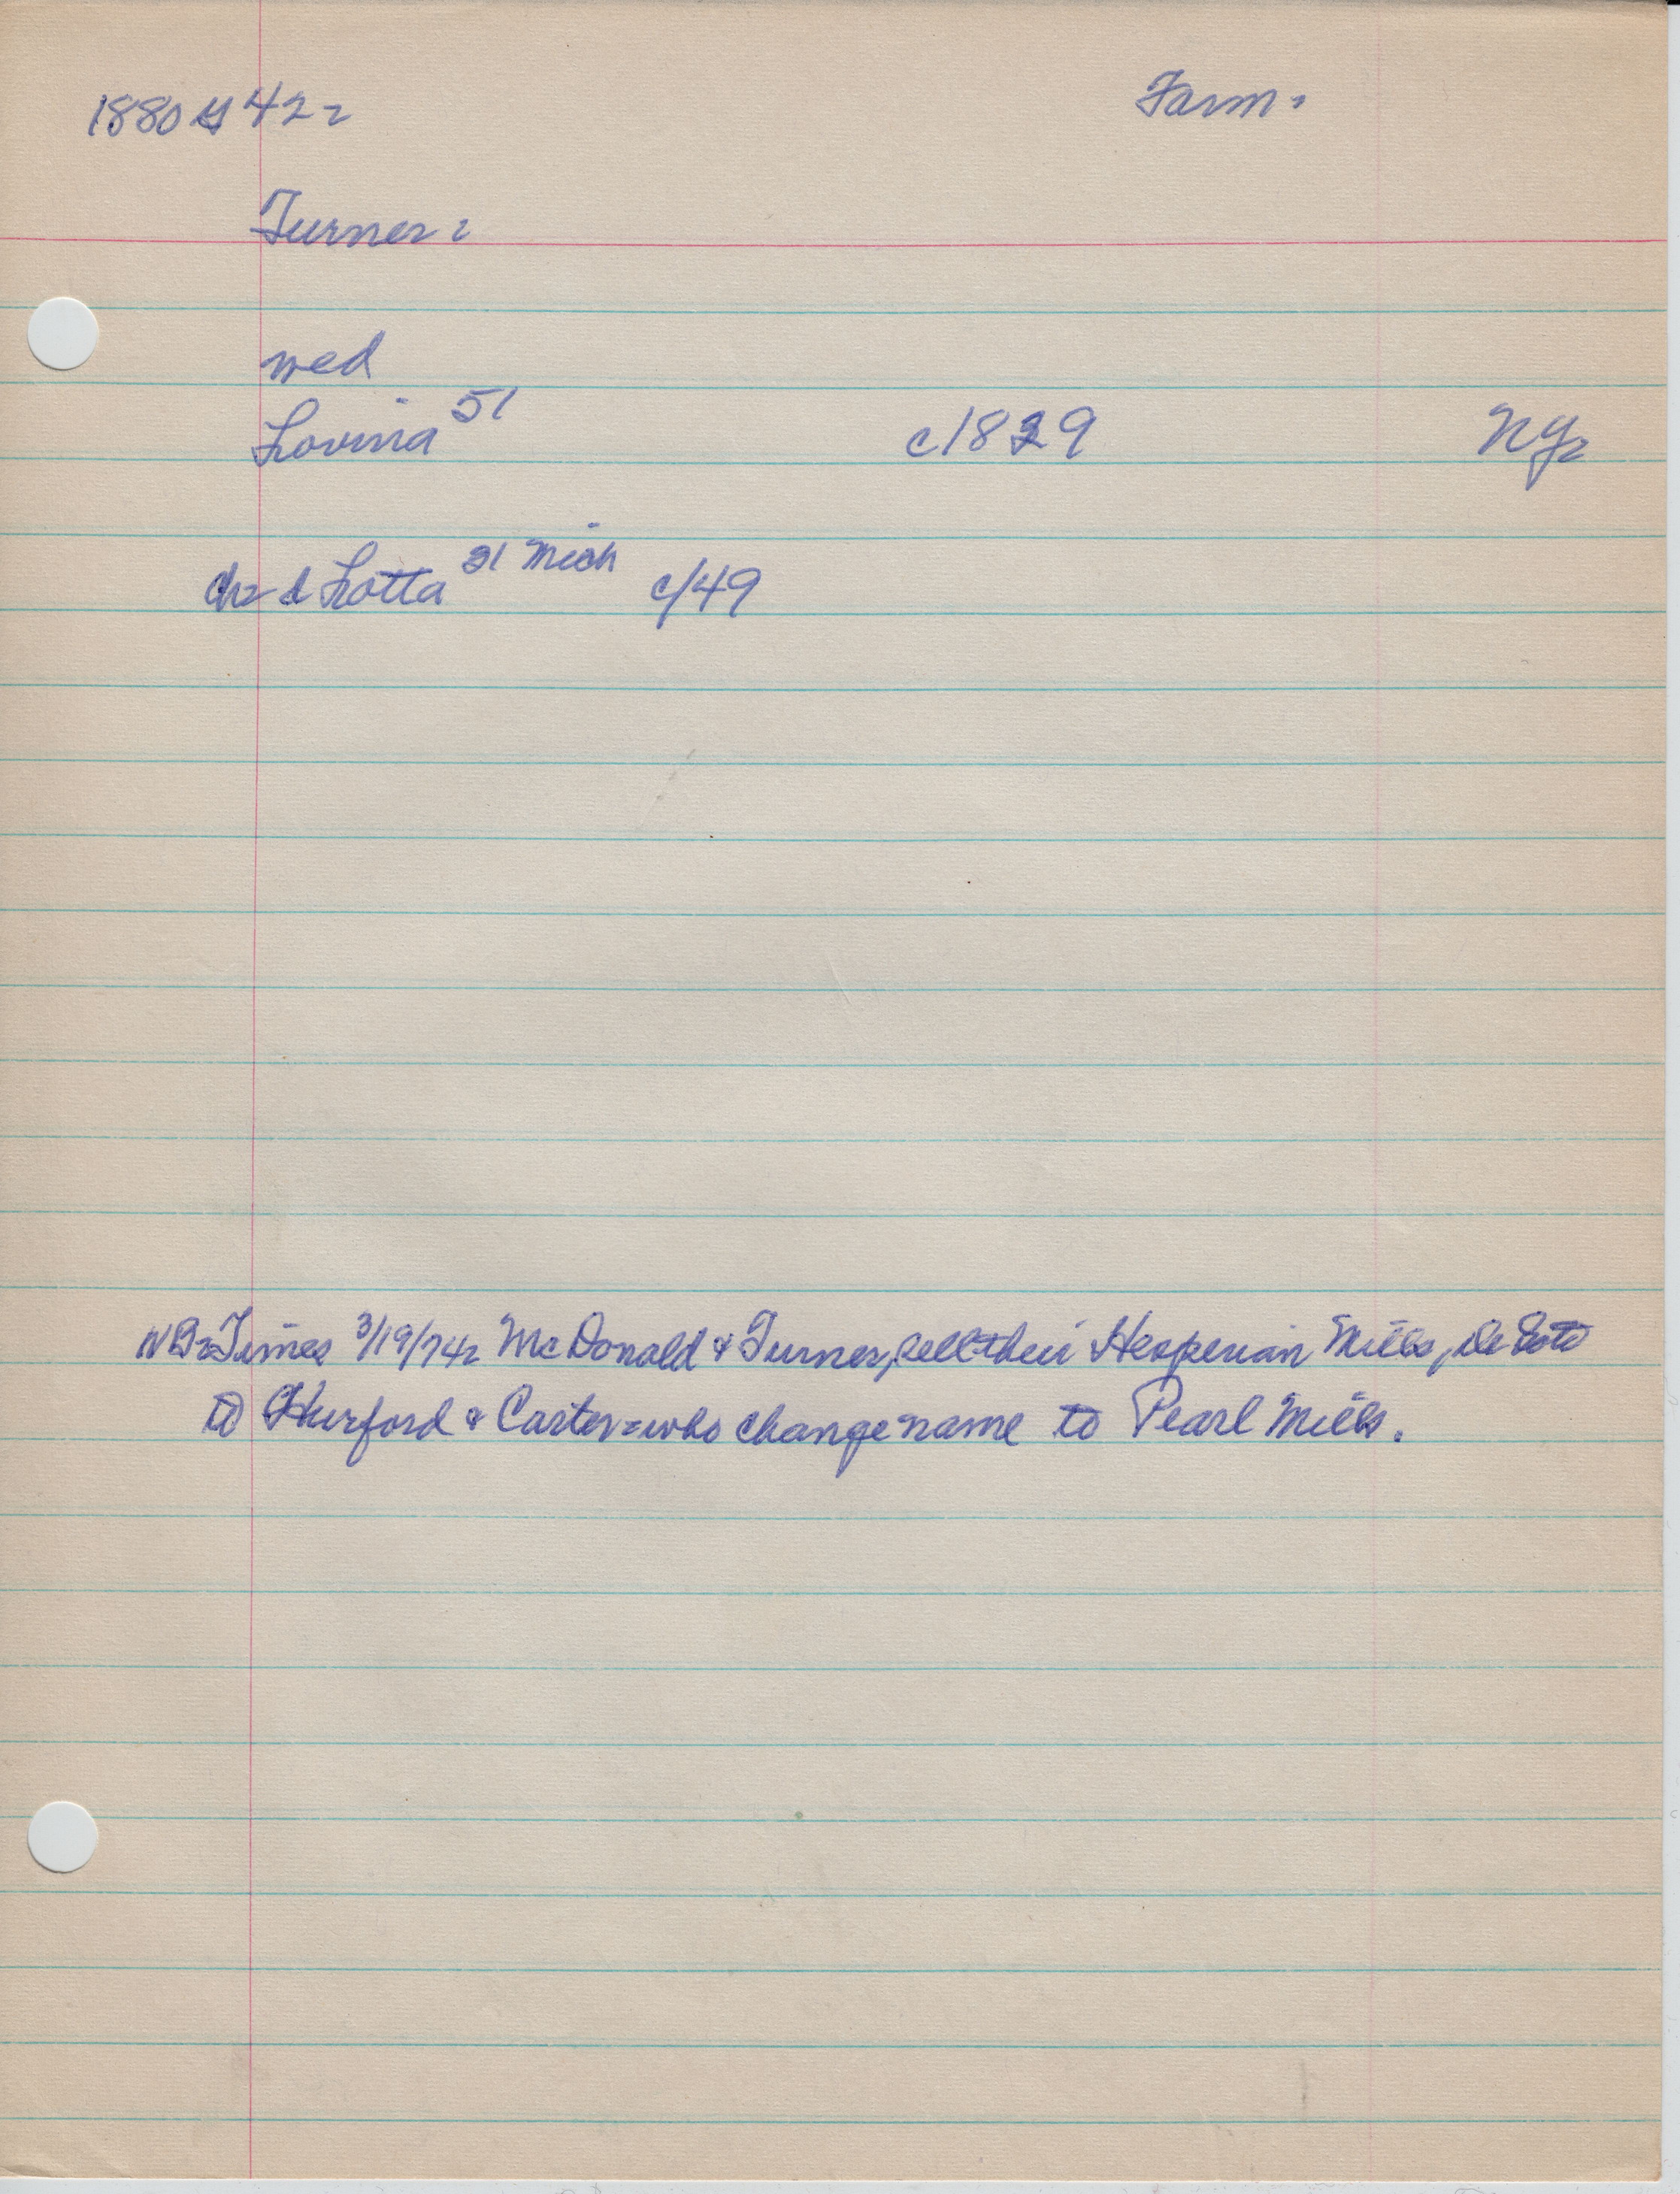 1880 42 - Farm -
Turner -
wed
Lovina 51 c1829 NY -
ch - d Lotta 31 Mich c/49
NB - Times 3/19/74 - McDonald & Turner, sell their Hesperian Mills, De Soto
to Hurford & Carter - who change name to Pearl Mills.